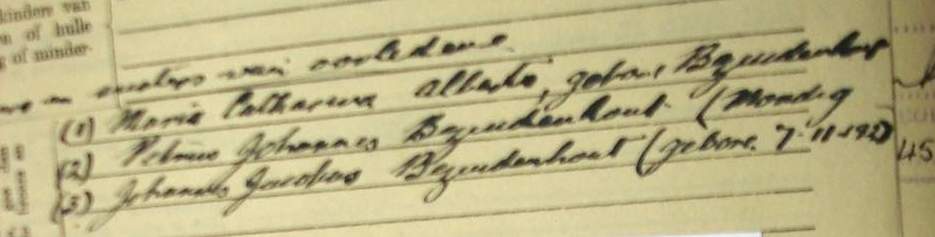 kinders van
of hulle
of minder-
van oorledene
(1) Maria Catharina Alberts, gebore Bezuidenhout
(2) Petrus Johannes Bezuidenhout (Mondig
(3) Johannes Jacobus Bezuidenhout (gebore 7-11-1927)
45